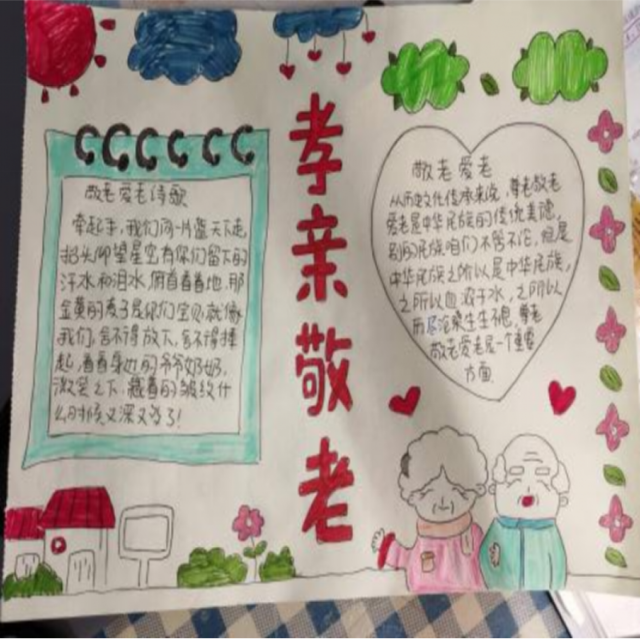 孝亲敬老
敬老爱老诗歌
牵起手,我们向一片蓝天下走
抬头仰望星空有你们留下的
汗水和泪水,俯首看着地,那
金黄的麦子是你们宝贝,就像
我们,舍不得放下,舍不得捧
起,看看身边的爷爷奶奶,
微笑之下,藏着的皱纹什
么时候又深又多了!
敬老爱老
从历史文化传承来说,尊老敬老
爱老是中华民族的传统美德,
别的民族咱们不管不论,但是
中华民族之所以是中华民族,
之所以血浓于水,之所以
历尽沧桑生生不息,尊老
敬老爱老是一个重要
方面